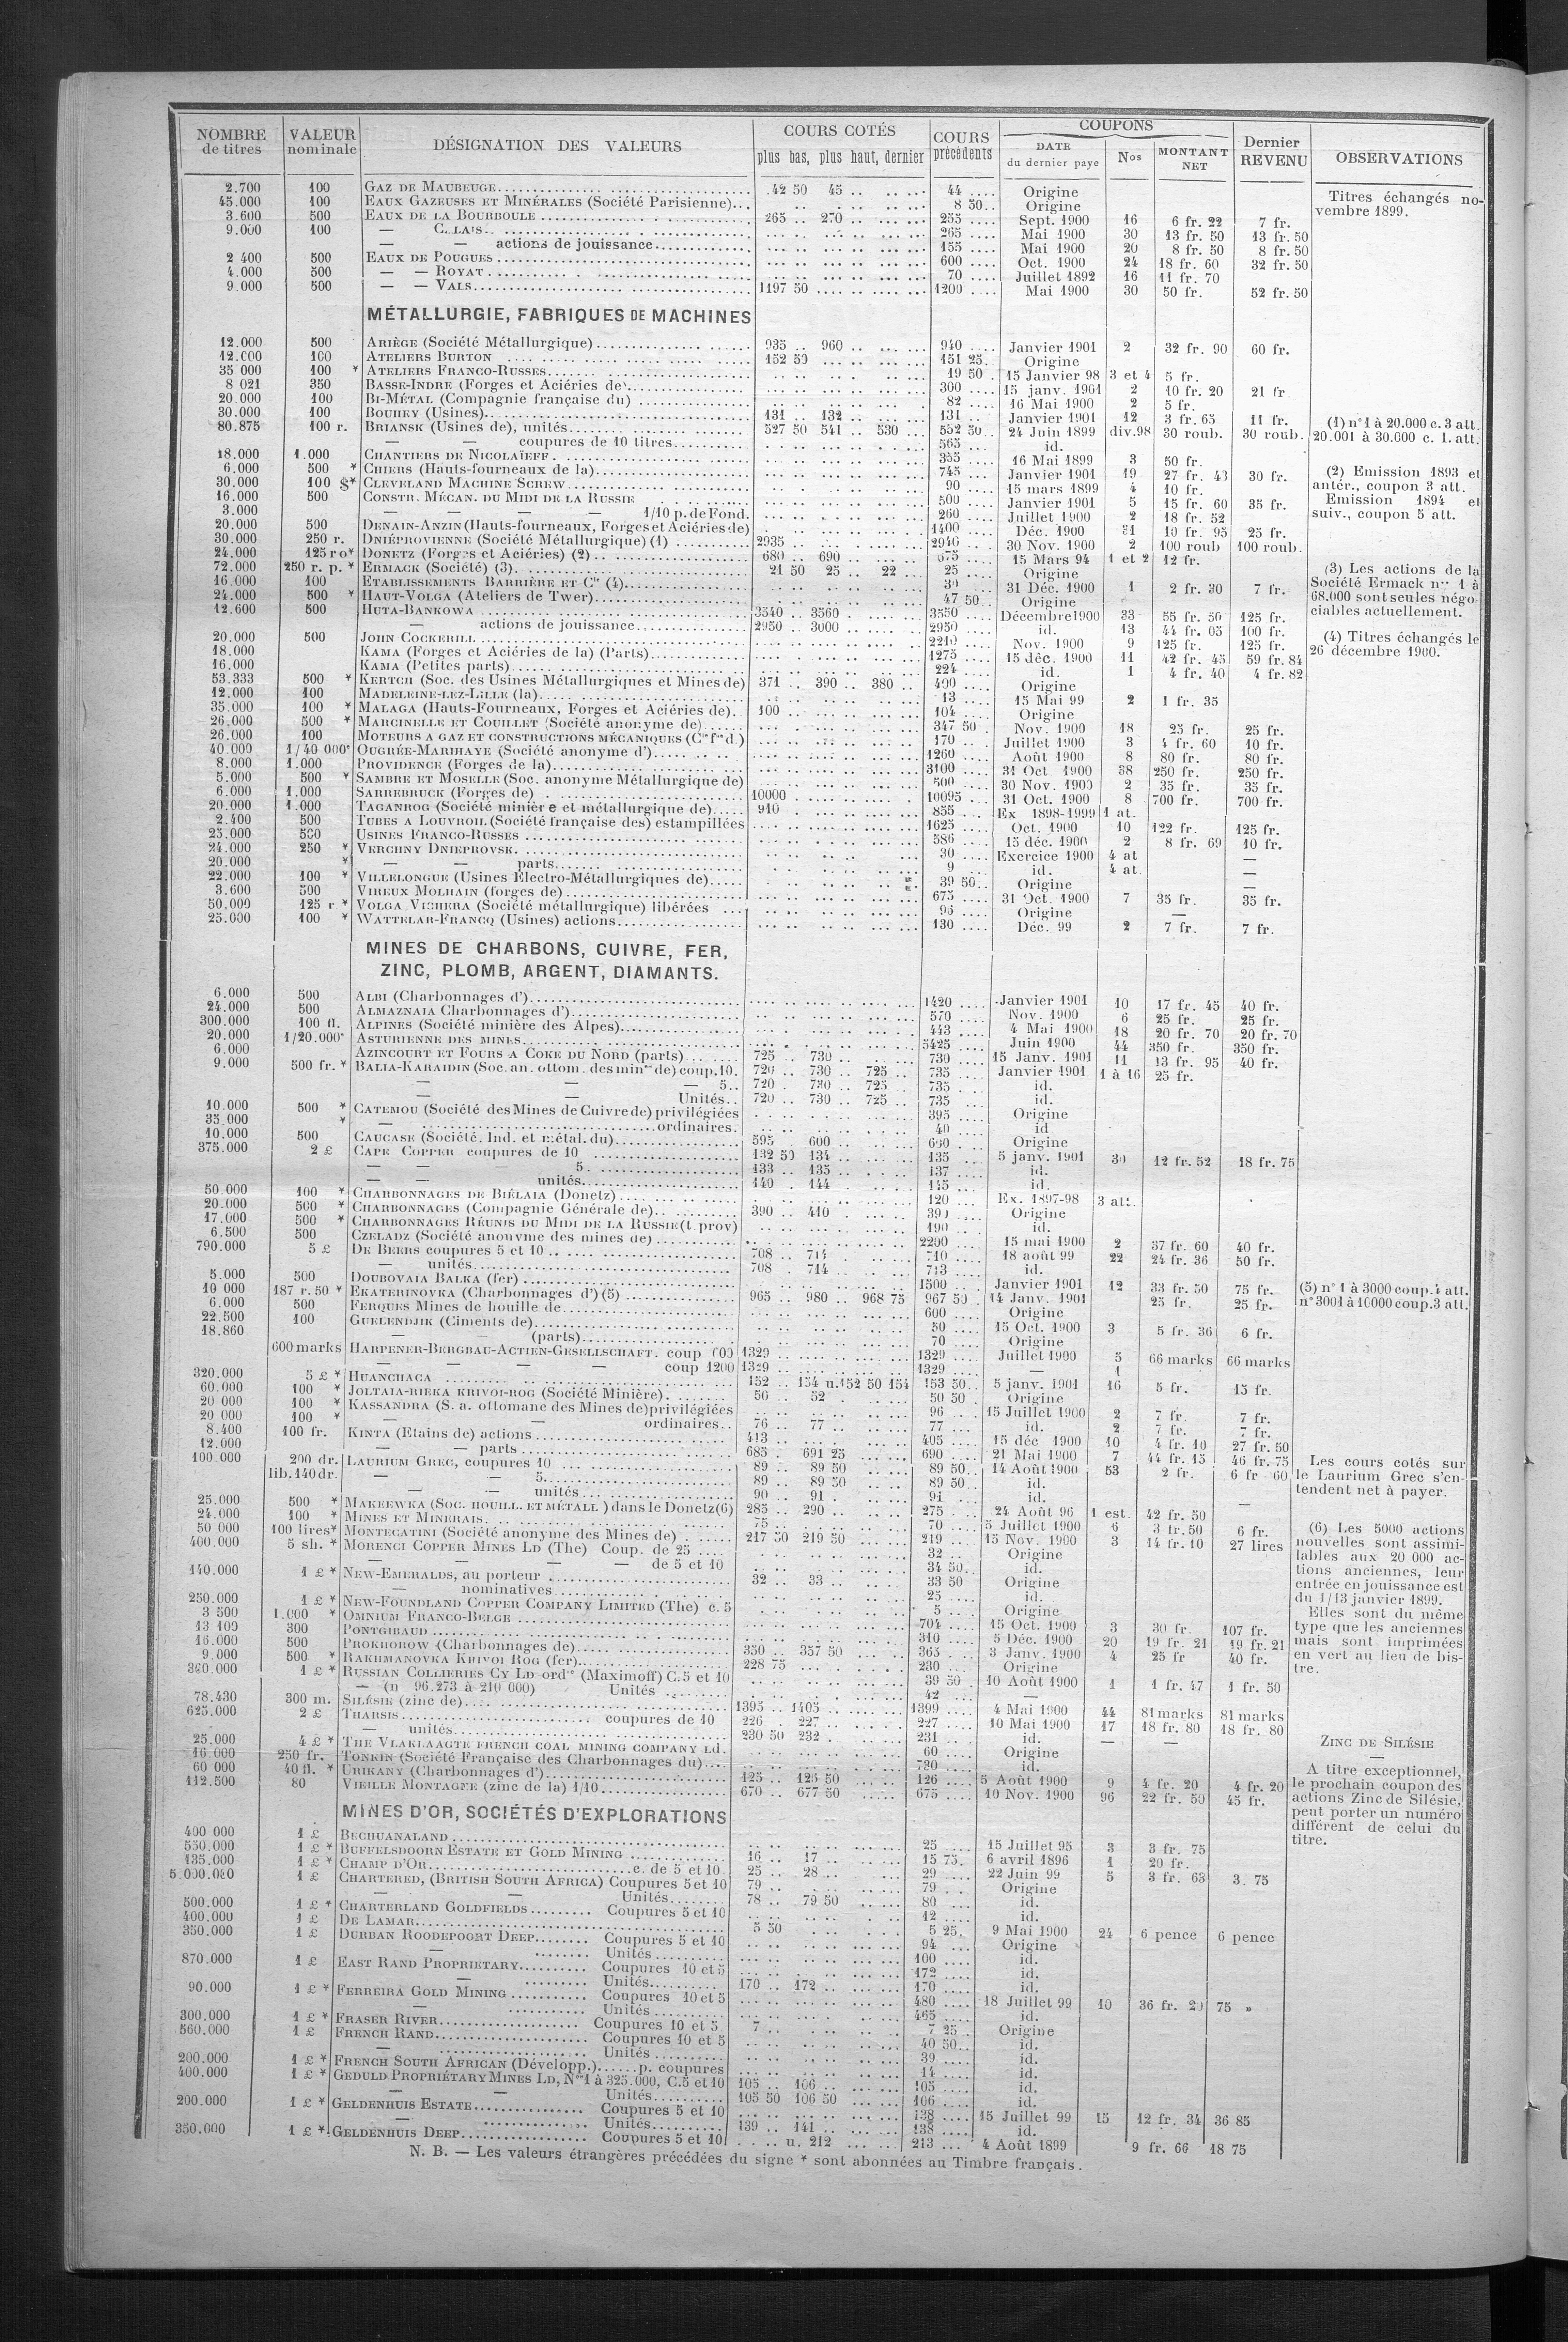 NOMBRE de titres | VALEUR nominale | DÉSIGNATION DES VALEURS | COURS COTÉS plus bas, plus haut, dernier | COURS précédents | COUPONS DATE du dernier paye | Nos | MONTANT NET | Dernier REVENU | OBSERVATIONS
2.700 100 GAZ DE MAUBEUGE 42 50 45 44 Origine
45.000 100 EAUX GAZEUSES ET MINÉRALES (Société Parisienne) 8 50 Origine Titres échangés no-
3.600 500 EAUX DE LA BOURBOULE 265 270 255 Sept. 1900 16 6 fr. 22 7 fr. vembre 1899.
9.000 100 — 265 Mai 1900 30 13 fr. 50 13 fr. 50
— — actions de jouissance 155 Mai 1900 20 8 fr. 50 8 fr. 50
2 400 500 EAUX DE POUGUES 600 Oct. 1900 24 18 fr. 60 32 fr. 50
4.000 500 — — ROYAT 70 Juillet 1892 16 11 fr. 70
9.000 500 — — VALS 1197 50 1200 Mai 1900 30 50 fr. 52 fr. 50
MÉTALLURGIE, FABRIQUES DE MACHINES
12.000 500 ARIÈGE (Société Métallurgique) 935 960 940 Janvier 1901 2 32 fr. 90 60 fr.
12.000 100 ATELIERS BURTON 152 50 151 25 Origine
35 000 100 * ATELIERS FRANCO-RUSSES 19 50 15 Janvier 98 3 et 4 5 fr.
8 021 350 BASSE-INDRE (Forges et Aciéries de) 300 15 janv. 1901 2 10 fr. 20 21 fr
20.000 100 BI-MÉTAL (Compagnie française du) 82 16 Mai 1900 2 5 fr.
30.000 100 BOUHEY (Usines) 131 132 131 Janvier 1901 12 3 fr. 65 11 fr. (1) n° 1 à 20.000 c. 3 att.
80.875 100 r. BRIANSK (Usines de), unités 527 50 541 530 552 50 24 Juin 1899 div.98 30 roub. 30 roub. 20.001 à 30.000 c. 1. att.
— — coupures de 10 titres 565 id.
18.000 1.000 CHANTIERS DE NICOLAÏEFF 355 16 Mai 1899 3 50 fr.
6.000 500 * CHIERS (Hauts-fourneaux de la) 745 Janvier 1901 19 27 fr. 43 30 fr. (2) Emission 1893 et
30.000 100 $* CLEVELAND MACHINE SCREW 90 15 mars 1899 4 10 fr. antér., coupon 3 att.
16.000 500 CONSTR. MÉCAN. DU MIDI DE LA RUSSIE 500 Janvier 1901 5 15 fr. 60 35 fr. Emission 1894 et
3.000 — — — — 1/10 p. de Fond. 260 Juillet 1900 2 18 fr. 52 suiv., coupon 5 att.
20.000 500 DENAIN-ANZIN (Hauts-fourneaux, Forges et Aciéries de) 1400 Déc. 1900 51 19 fr. 95 25 fr.
30.000 250 r. DNIÉPROVIENNE (Société Métallurgique) (1) 2935 2940 30 Nov. 1900 2 100 roub 100 roub.
24.000 125 ro* DONETZ (Forges et Aciéries) (2) 680 690 675 15 Mars 94 1 et 2 12 fr.
72.000 250 r. p. * ERMACK (Société) (3) 21 50 25 22 25 Origine (3) Les actions de la
16.000 100 ETABLISSEMENTS BARRIÈRE ET Cie (4) 30 31 Déc. 1900 1 2 fr. 30 7 fr. Société Ermack nos 1 à
24.000 500 * HAUT-VOLGA (Ateliers de Twer) 47 50 Origine 68.000 sont seules négo-
12.600 500 HUTA-BANKOWA 3540 3560 3550 Décembre 1900 33 55 fr. 50 125 fr. ciables actuellement.
— actions de jouissance 2950 3000 2950 id. 13 44 fr. 05 100 fr.
20.000 500 JOHN COCKERILL 2210 Nov. 1900 9 125 fr. 125 fr. (4) Titres échangés le
18.000 KAMA (Forges et Aciéries de la) (Parts) 1275 15 déc. 1900 11 42 fr. 45 59 fr. 84 26 décembre 1900.
16.000 KAMA (Petites parts) 224 id. 1 4 fr. 40 4 fr. 82
53.333 500 * KERTCH (Soc. des Usines Métallurgiques et Mines de) 371 390 380 400 Origine
12.000 100 MADELEINE-LEZ-LILLE (la) 13 15 Mai 99 2 1 fr. 35
35.000 100 * MALAGA (Hauts-Fourneaux, Forges et Aciéries de) 100 104 Origine
26.000 500 * MARCINELLE ET COUILLET (Société anonyme de) 347 50 Nov. 1900 18 25 fr. 25 fr.
26.000 100 MOTEURS A GAZ ET CONSTRUCTIONS MÉCANIQUES (Cie fse d.) 170 Juillet 1900 3 4 fr. 60 10 fr.
40.000 1/40 000e OUGRÉE-MARIHAYE (Société anonyme d') 1260 Août 1900 8 80 fr. 80 fr.
8.000 1.000 PROVIDENCE (Forges de la) 3100 31 Oct 1900 58 250 fr. 250 fr.
5.000 500 * SAMBRE ET MOSELLE (Soc. anonyme Métallurgique de) 500 30 Nov. 1900 2 35 fr. 35 fr.
6.000 1.000 SARREBRUCK (Forges de) 10000 10095 31 Oct. 1900 8 700 fr. 700 fr.
20.000 1.000 TAGANROG (Société minière et métallurgique de) 910 855 Ex 1898-1999 1 at.
2.400 500 TUBES A LOUVROIL (Société française des) estampillées 1625 Oct. 1900 10 122 fr. 125 fr.
25.000 500 USINES FRANCO-RUSSES 586 15 déc. 1900 2 8 fr. 69 10 fr.
24.000 250 * VERCHNY DNIEPROVSK 30 Exercice 1900 4 at —
20.000 * — — parts 9 id. 4 at. —
22.000 100 * VILLELONGUE (Usines Electro-Métallurgiques de) 39 50 Origine —
3.600 500 VIREUX MOLHAIN (forges de) 675 31 Oct. 1900 7 35 fr. 35 fr.
50.000 125 r * VOLGA VICHERA (Société métallurgique) libérées 95 Origine —
25.000 100 * WATTELAR-FRANCQ (Usines) actions 130 Déc. 99 2 7 fr. 7 fr.
MINES DE CHARBONS, CUIVRE, FER,
ZINC, PLOMB, ARGENT, DIAMANTS.
6.000 500 ALBI (Charbonnages d') 1420 Janvier 1901 10 17 fr. 45 40 fr.
24.000 500 ALMAZNAIA Charbonnages d') 570 Nov. 1900 6 25 fr. 25 fr.
300.000 100 fl. ALPINES (Société minière des Alpes) 443 4 Mai 1900 18 20 fr. 70 20 fr. 70
20.000 1/20.000e ASTURIENNE DES MINES 5425 Juin 1900 44 350 fr. 350 fr.
6.000 AZINCOURT ET FOURS A COKE DU NORD (parts) 725 730 730 15 Janv. 1901 11 13 fr. 95 40 fr.
9.000 500 fr. * BALIA-KARAIDIN (Soc. an. ottom. des mines de) coup. 10. 720 730 725 735 Janvier 1901 1 à 16 25 fr.
— — — 5 720 730 725 735 id.
— — Unités 720 730 725 735 id.
10.000 500 * CATEMOU (Société des Mines de Cuivre de) privilégiées 395 Origine
35.000 * — ordinaires. 40 id
10.000 500 CAUCASE (Société. Ind. et métal. du) 595 600 600 Origine
375.000 2 £ CAPE COPPER coupures de 10 132 50 134 135 5 janv. 1901 30 12 fr. 52 18 fr. 75
— — — 5 133 135 137 id.
— — unités 140 144 145 id.
50.000 100 * CHARBONNAGES DE BIÉLAIA (Donetz) 120 Ex. 1897-98 3 att.
20.000 500 * CHARBONNAGES (Compagnie Générale de) 390 410 390 Origine
17.000 500 * CHARBONNAGES RÉUNIS DU MIDI DE LA RUSSIE (t. prov) 490 id.
6.500 500 CZELADZ (Société anonyme des mines de) 2200 15 mai 1900 2 37 fr. 60 40 fr.
790.000 5 £ DE BEERS coupures 5 et 10 708 714 710 18 août 99 22 24 fr. 36 50 fr.
— unités 708 714 713 id.
5.000 500 DOUBOVAIA BALKA (fer) 1500 Janvier 1901 12 33 fr. 50 75 fr. (5) n° 1 à 3000 coup. 4 att.
10 000 187 r. 50 * EKATERINOVKA (Charbonnages d') (5) 965 980 968 75 967 50 14 Janv. 1901 25 fr. 25 fr. n° 3001 à 10000 coup. 3 att.
6.000 500 FERQUES Mines de houille de 600 Origine
22.500 100 GUELENDJIK (Ciments de) 50 15 Oct. 1900 3 5 fr. 36 6 fr.
18.860 — — (parts) 70 Origine
600 marks HARPENER-BERGBAU-ACTIEN-GESELLSCHAFT. coup 600 1329 1329 Juillet 1900 5 66 marks 66 marks
— — — — coup 1200 1329 1329 — 1
320.000 5 £ * HUANCHACA 152 154 u. 152 50 154 153 50 5 janv. 1901 16 5 fr. 15 fr.
60.000 100 * JOLTAIA-RIEKA KRIVOI-ROG (Société Minière) 50 52 50 50 Origine
20 000 100 * KASSANDRA (S. a. ottomane des Mines de) privilégiées 96 15 Juillet 1900 2 7 fr. 7 fr.
20 000 100 * — — ordinaires 76 77 77 id. 2 7 fr. 7 fr.
8.400 100 fr. KINTA (Etains de) actions 413 405 15 déc 1900 10 4 fr. 10 27 fr. 50
12.000 — — parts 685 691 25 690 21 Mai 1900 7 44 fr. 15 46 fr. 75 Les cours cotés sur
100 000 200 dr. LAURIUM GREC, coupures 10 89 89 50 89 50 14 Août 1900 53 2 fr. 6 fr 60 le Laurium Grec s'en-
lib. 140 dr. — — 5 89 89 50 89 50 id. tendent net à payer.
— — unités 90 91 91 id.
25.000 500 * MAKEEWKA (SOC. HOUILL. ET MÉTALL) dans le Donetz (6) 285 290 275 24 Août 96 1 est. 42 fr. 50 —
24.000 100 * MINES ET MINERAIS 75 70 5 Juillet 1900 6 3 fr. 50 6 fr. (6) Les 5000 actions
50 000 100 lires* MONTECATINI (Société anonyme des Mines de) 217 50 219 50 219 15 Nov. 1900 3 14 fr. 10 27 lires nouvelles sont assimi-
400.000 5 sh. * MORENCI COPPER MINES LD (The) Coup. de 25 32 Origine lables aux 20 000 ac-
— — — — de 5 et 10 34 50 id. tions anciennes, leur
140.000 1 £ * NEW-EMERALDS, au porteur 32 33 33 50 Origine entrée en jouissance est
— nominatives 25 id. du 1/13 janvier 1899.
250.000 1 £ * NEW-FOUNDLAND COPPER COMPANY LIMITED (The) c. 5 5 Origine Elles sont du même
3 500 1.000 * OMNIUM FRANCO-BELGE 704 15 Oct. 1900 3 30 fr. 107 fr. type que les anciennes
13 100 300 PONTGIBAUD 310 5 Déc. 1900 20 19 fr. 21 19 fr. 21 mais sont imprimées
16.000 500 PROKHOROW (Charbonnages de) 350 357 50 365 3 Janv. 1900 4 25 fr 40 fr. en vert au lieu de bis-
9.000 500 * RAKHMANOVKA KRIVOI ROG (fer) 228 75 230 Origine tre.
360.000 1 £ * RUSSIAN COLLIERIES CY LD ordre (Maximoff) C. 5 et 10 39 50 10 Août 1900 1 1 fr. 47 1 fr. 50
— (n 96.273 à 210 000) Unités 42 —
78.430 300 m. SILÉSIE (zinc de) 1395 1405 1399 4 Mai 1900 44 81 marks 81 marks
625.000 2 £ THARSIS coupures de 10 226 227 227 10 Mai 1900 17 18 fr. 80 18 fr. 80
— unités 230 50 232 231 id. — —
25.000 4 £ * THE VLAKLAAGTE FRENCH COAL MINING COMPANY Ld. 60 Origine ZINC DE SILÉSIE
16.000 250 fr. TONKIN (Société Française des Charbonnages du) 780 id. —
60 000 40 fl. * URIKANY (Charbonnages d') 125 126 50 126 5 Août 1900 9 4 fr. 20 4 fr. 20 A titre exceptionnel,
112.500 80 VIEILLE MONTAGNE (zinc de la) 1/10 670 677 50 675 10 Nov. 1900 96 22 fr. 50 45 fr. le prochain coupon des
actions Zinc de Silésie,
MINES D'OR, SOCIÉTÉS D'EXPLORATIONS
peut porter un numéro
différent de celui du
titre.
400 000 1 £ BECHUANALAND 25 15 Juillet 95 3 3 fr. 75
550.000 1 £ * BUFFELSDOORN ESTATE ET GOLD MINING 16 17 15 75 6 avril 1896 1 20 fr.
135.000 1 £ * CHAMP D'OR c. de 5 et 10 25 28 29 22 Juin 99 5 3 fr. 63 3. 75
5.000.000 1 £ CHARTERED, (BRITISH SOUTH AFRICA) Coupures 5 et 10 79 79 Origine
— — Unités 78 79 50 80 id.
500.000 1 £ * CHARTERLAND GOLDFIELDS Coupures 5 et 10 12 id.
400.000 1 £ DE LAMAR 5 50 5 25 9 Mai 1900 24 6 pence 6 pence
350.000 1 £ DURBAN ROODEPOORT DEEP Coupures 5 et 10 94 Origine
— Unités 100 id.
870.000 1 £ EAST RAND PROPRIETARY Coupures 10 et 5 172 id.
— Unités 170 172 170 id.
90.000 1 £ * FERREIRA GOLD MINING Coupures 10 et 5 480 18 Juillet 99 10 36 fr. 20 75 »
— Unités 465 id.
300.000 1 £ * FRASER RIVER Coupures 10 et 5 7 7 25 Origine
560.000 1 £ FRENCH RAND Coupures 10 et 5 40 50 id.
— Unités 39 id.
200.000 1 £ * FRENCH SOUTH AFRICAN (Développ.) p. coupures 14 id.
400.000 1 £ * GEDULD PROPRIÉTARY MINES LD, Nos 1 à 325.000, C. 5 et 10 105 106 105 id.
— — Unités 105 50 106 50 106 id.
200.000 1 £ * GELDENHUIS ESTATE Coupures 5 et 10 138 15 Juillet 99 15 12 fr. 34 36 85
— Unités 139 141 138 id.
350.000 1 £ * GELDENHUIS DEEP Coupures 5 et 10 u. 212 213 4 Août 1899 9 fr. 66 18 75
N. B. — Les valeurs étrangères précédées du signe * sont abonnées au Timbre français.